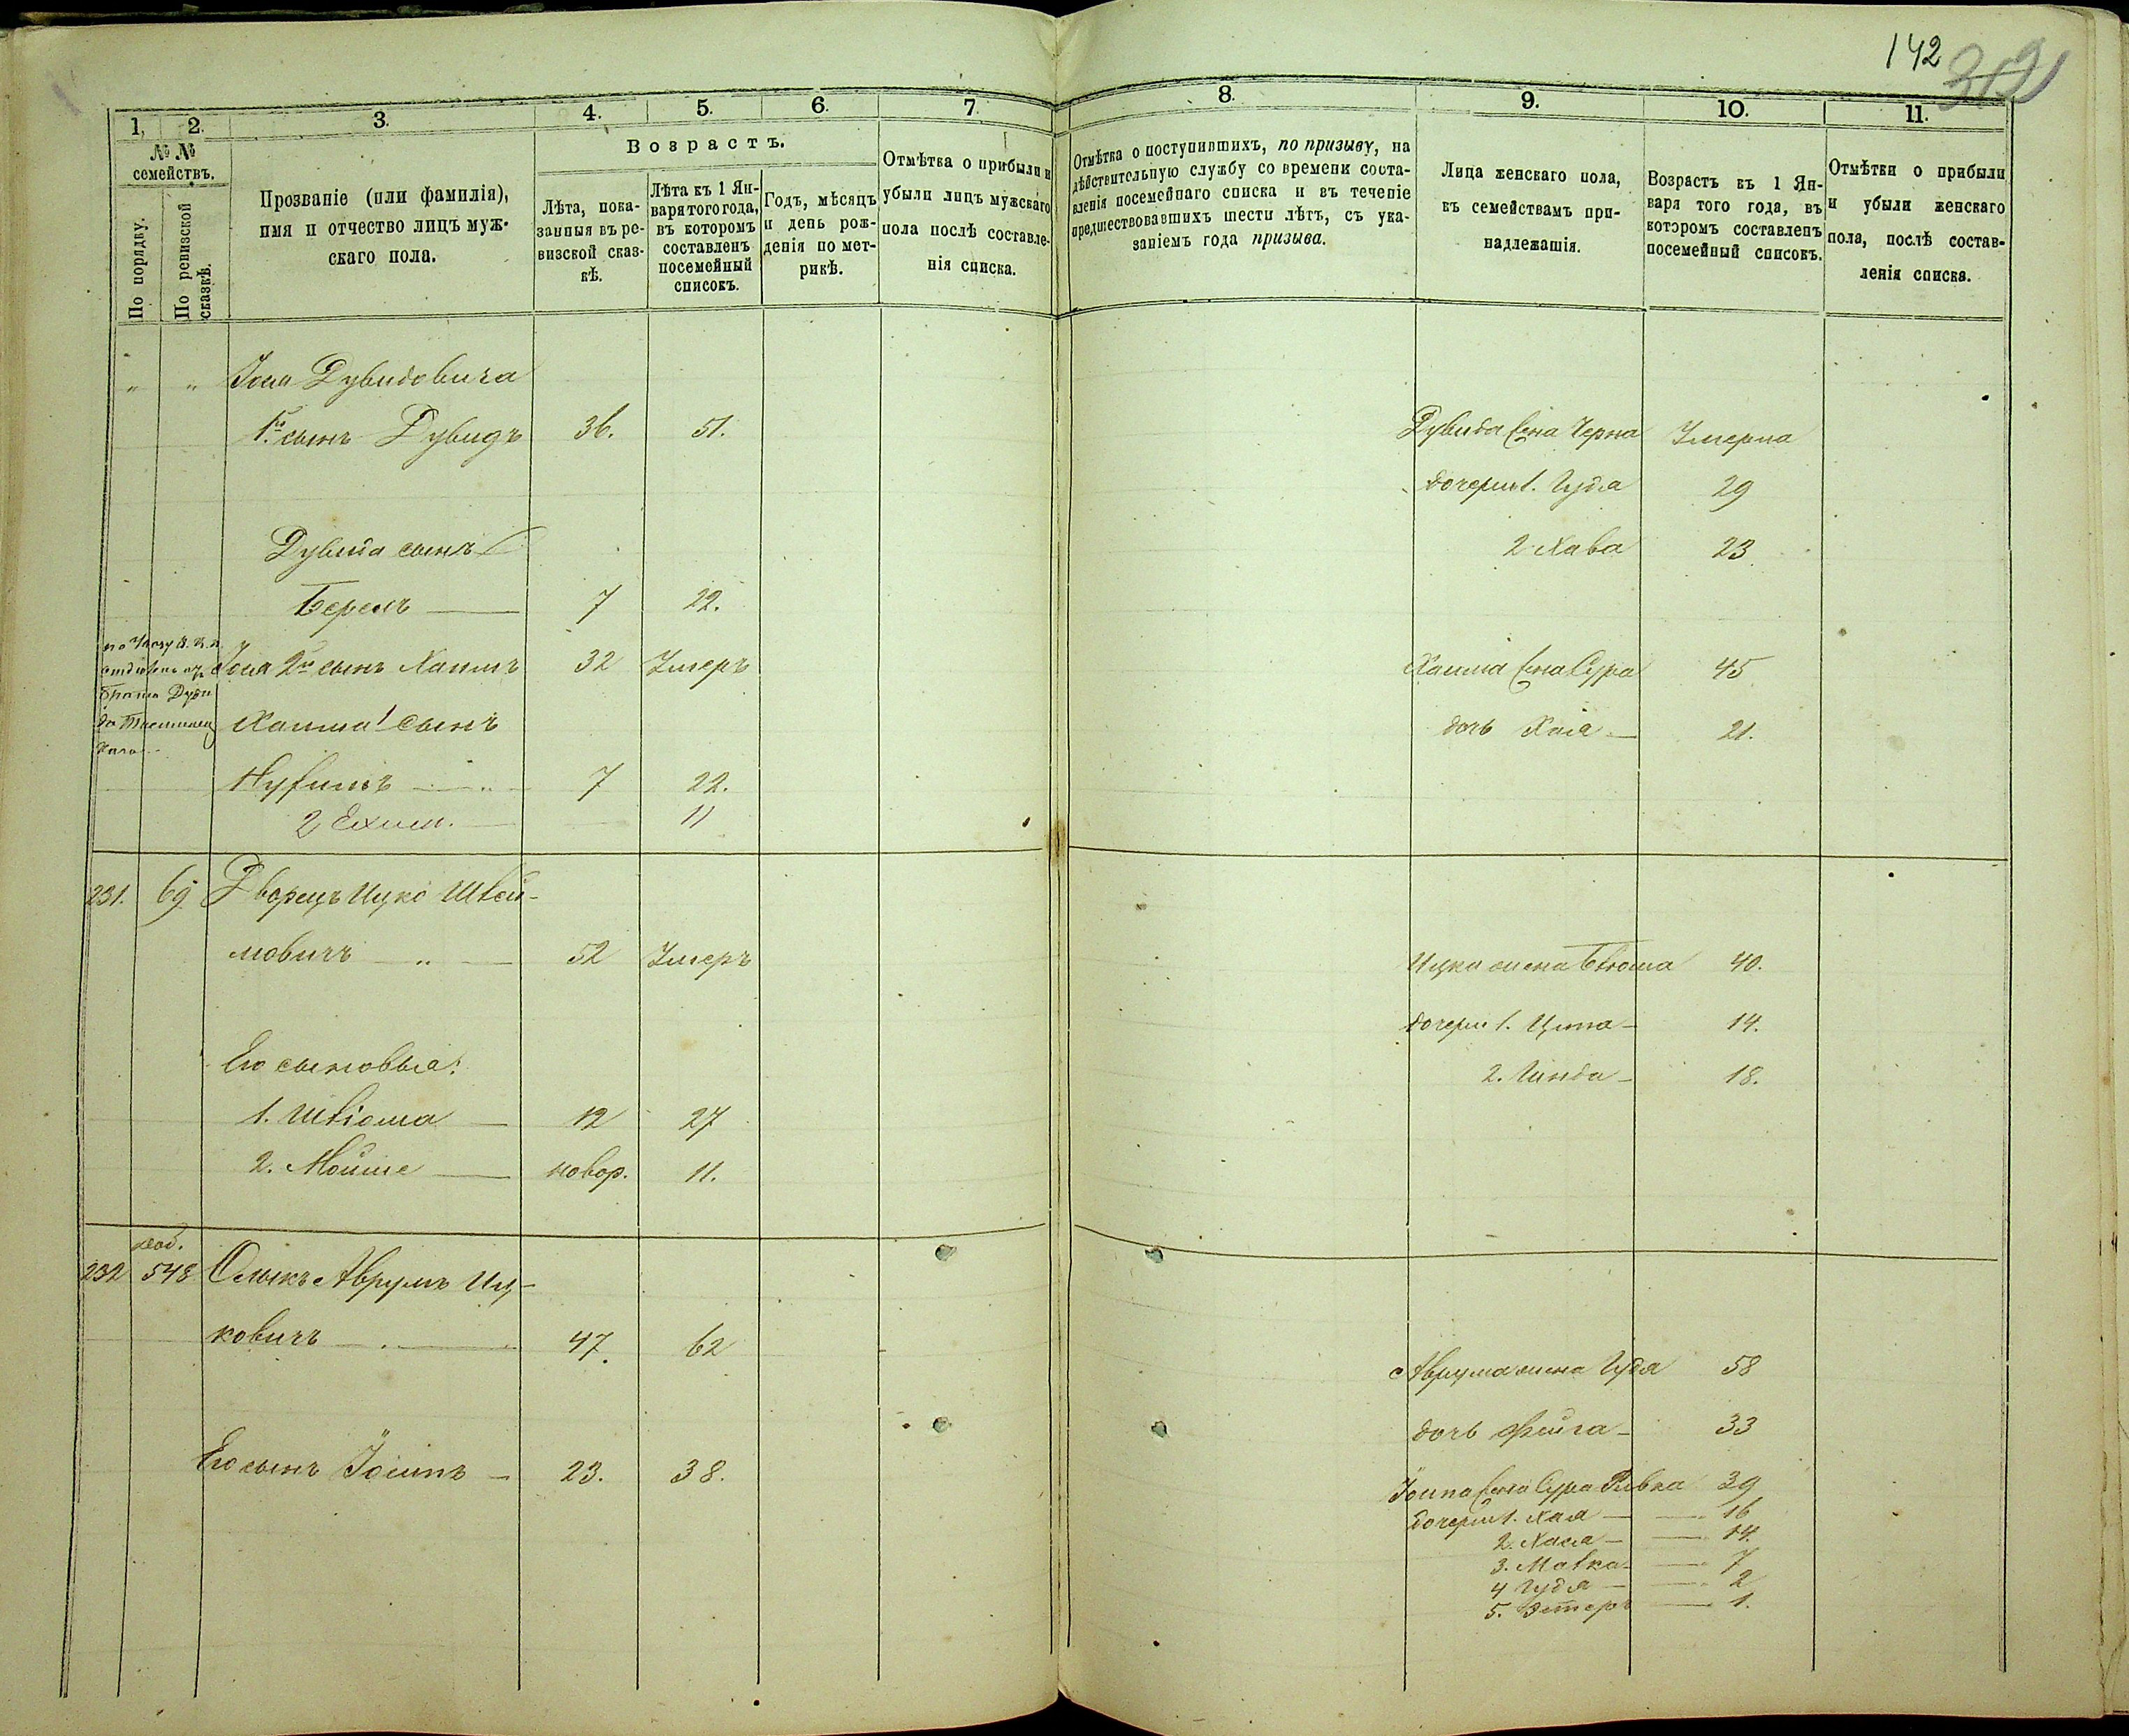 142
319
1. 2. 3. 4. 5. 6. 7. 8. 9. 10. 11.
№ №
семействъ.
По порядку.
По ревизской сказкѣ.
Прозваніе (или фамилія),
имя и отчество лицъ муж-
скаго пола.
Возрастъ.
Лѣта, пока-
занныя въ ре-
визской сказ-
кѣ.
Лѣта къ 1 Ян-
варя того года,
въ которомъ
составленъ
посемейный
списокъ.
Годъ, мѣсяцъ
и день рож-
денія по мет-
рикѣ.
Отмѣтка о прибыли и
убыли лицъ мужскаго
пола послѣ составле-
нія списка.
Отмѣтка о поступившихъ, по призыву, на
дѣйствительную службу со времени соста-
вленія посемейнаго списка и въ теченіе
предшествовавшихъ шести лѣтъ, съ ука-
заніемъ года призыва.
Лица женскаго пола,
къ семействамъ при-
надлежащія.
Возрастъ къ 1 Ян-
варя того года, въ
которомъ составленъ
посемейный списокъ.
Отмѣтки о прибыли
и убыли женскаго
пола, послѣ состав-
ленія списка.
" " Іоша Дувидовича
1й сынъ Дувидъ 36. 51. Дувида жена Черна Умерла
дочери 1. Гудя 29
Дувида сынъ 2 Хава 23
Берель 7 22.
Іоша 2й сынъ Хаимъ 32 Умеръ Хаима жена Сура 45
брата Дуви
да
Хаима 1 сынъ дочь Хаія 21.
Нухимъ 7 22.
2 Ехиел. 11
231. 69 Дворецъ Ицко Швой-
мовичъ 52 Умеръ Ицки жена Блюма 40.
дочери 1. Ципа 14.
Его сыновья: 2. Гинда 18.
1. Шліома 12 27
2. Мойше новор. 11.
доб.
232 548 Олыкъ Аврумъ Иц-
ковичъ 47. 62
Аврума жена Гудя 58
дочь Фейга 33
Его сынъ Йосипъ 23. 38.
Йосипа жена Сура Ривка 39
дочери 1. Хая 16
2. Хася 14.
3. Малка 7
4 Гудя 2
5. Эстеръ 1.